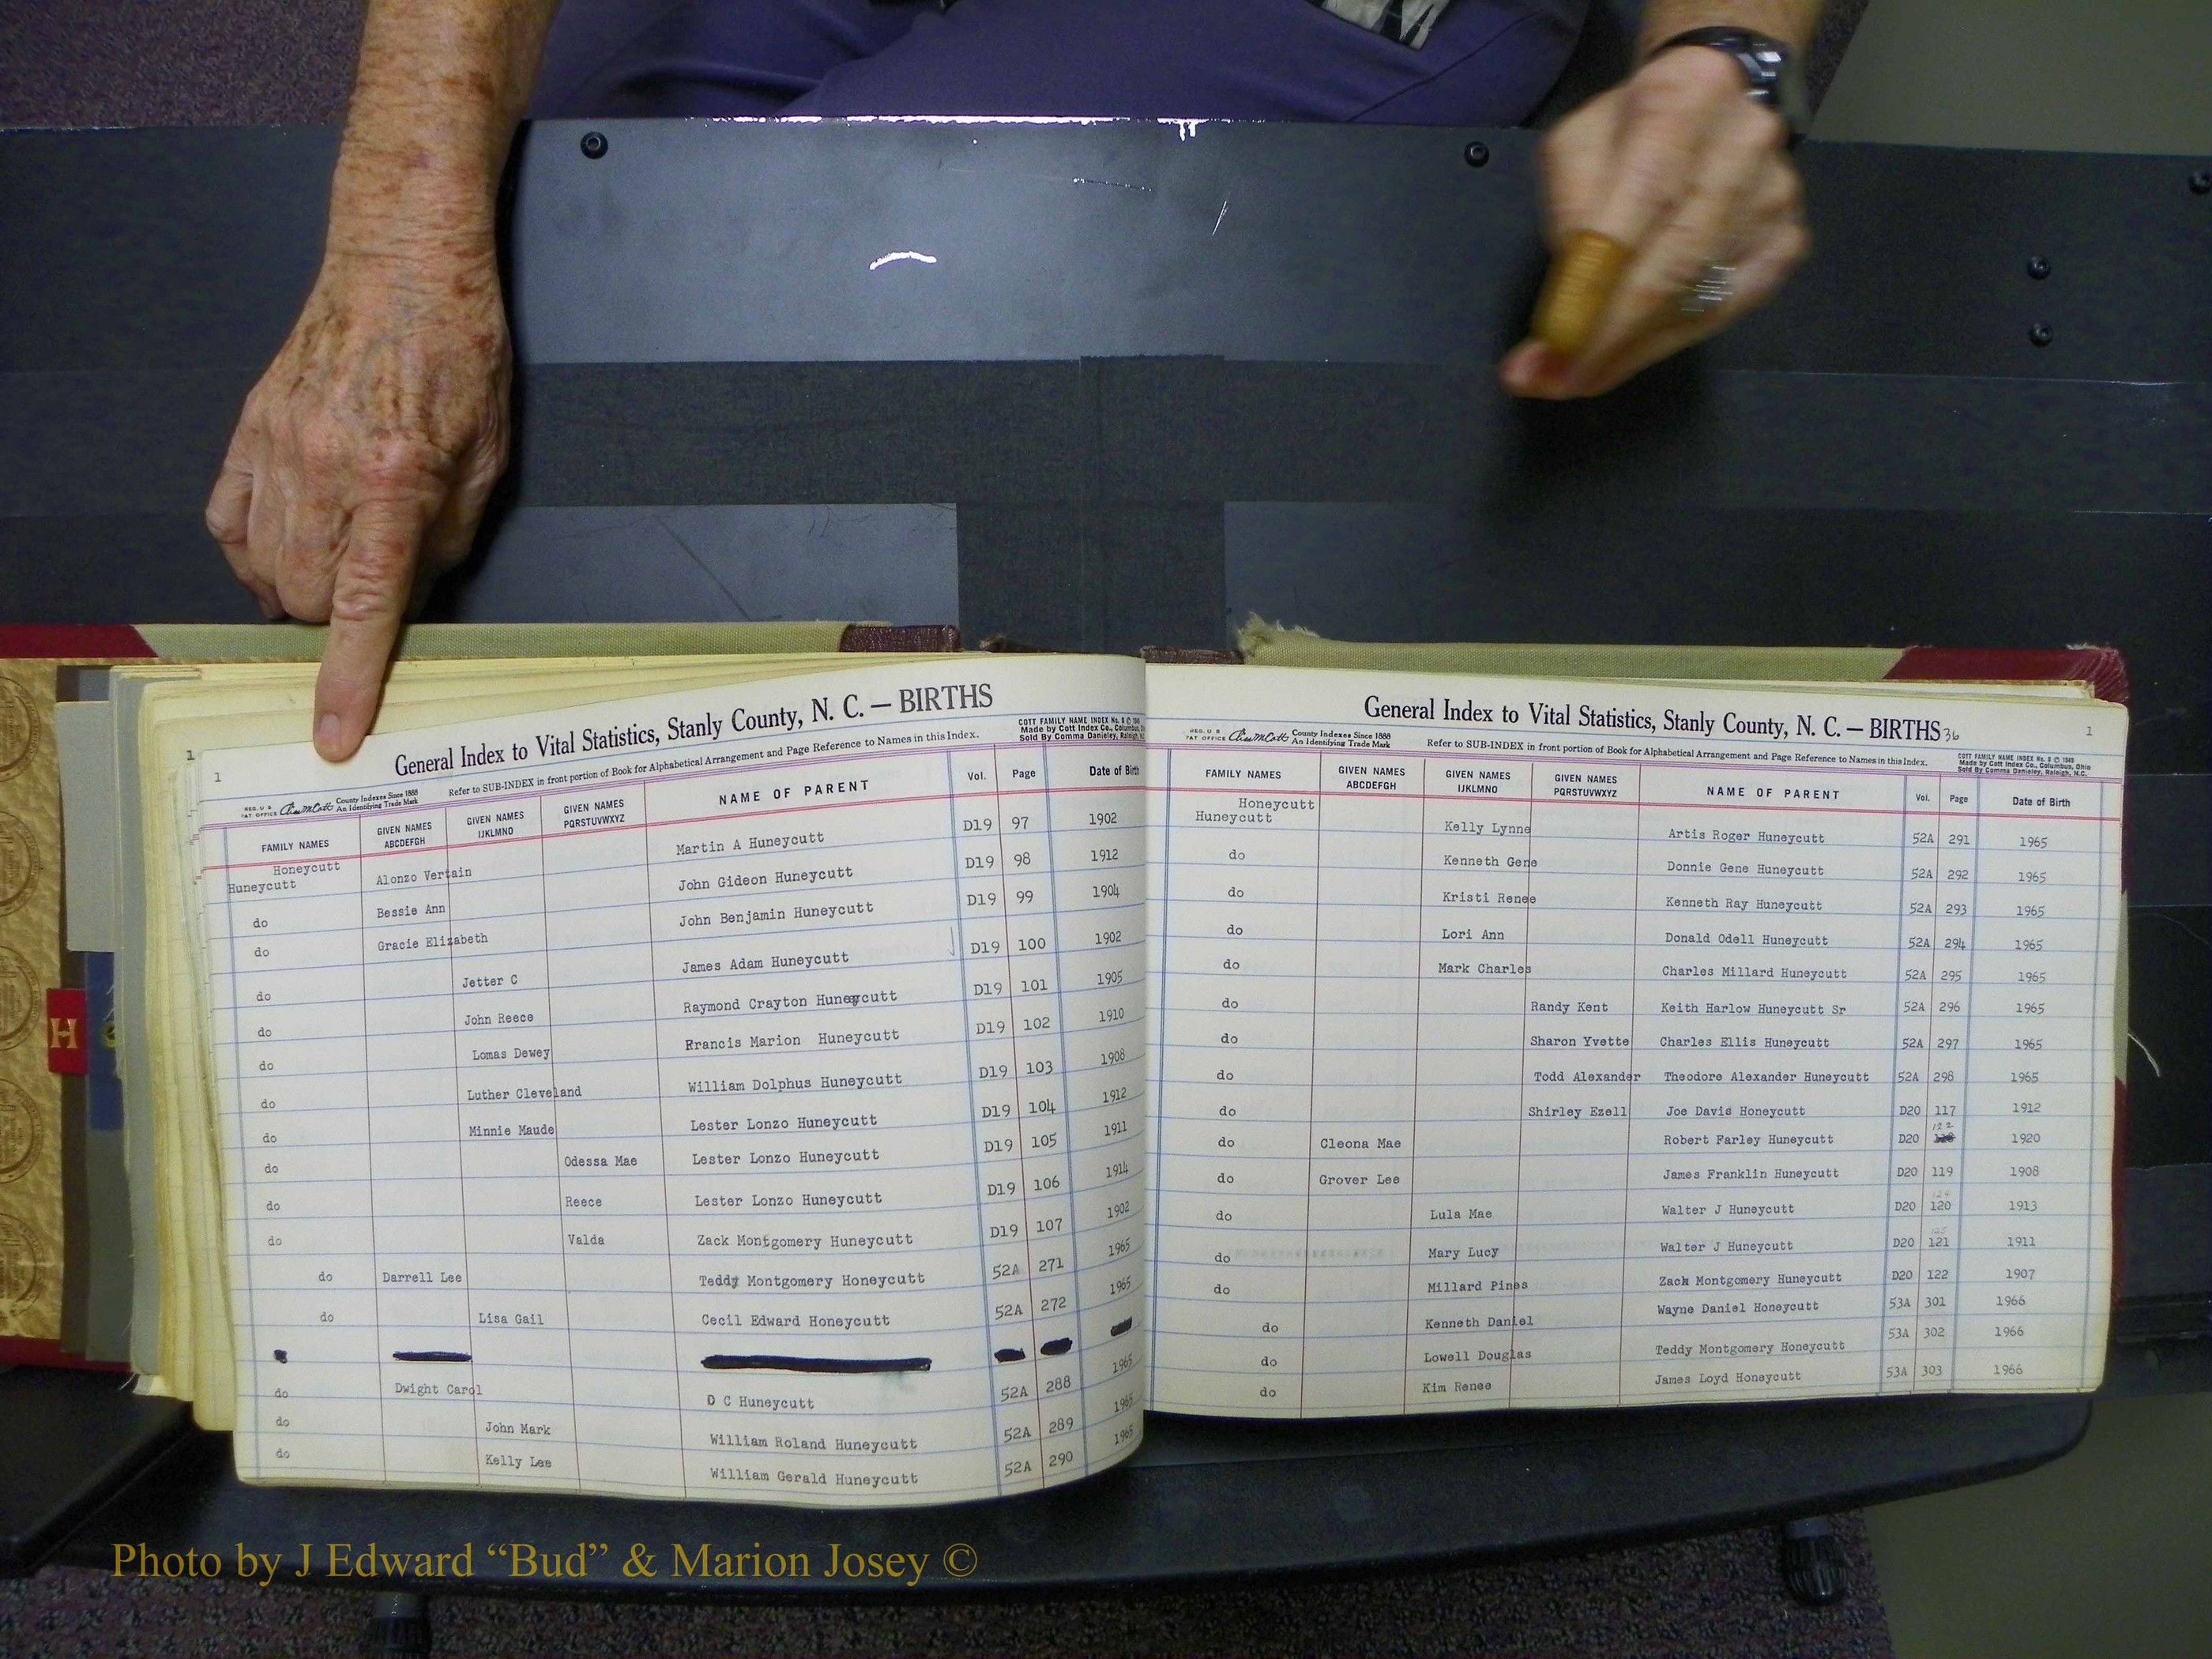 1
General Index to Vital Statistics, Stanly County, N. C. — BIRTHS
REG. U. S. PAT. OFFICE County Indexes Since 1888 An Identifying Trade Mark
Refer to SUB-INDEX in front portion of Book for Alphabetical Arrangement and Page Reference to Names in this Index.
COTT FAMILY NAME INDEX No. 8 © 1949
Made by Cott Index Co., Columbus,
Sold By Comma Danieley, Raleigh,
FAMILY NAMES GIVEN NAMES ABCDEFGH GIVEN NAMES IJKLMNO GIVEN NAMES PQRSTUVWXYZ NAME OF PARENT Vol. Page Date of Birth
Honeycutt
Huneycutt Alonzo Vertain Martin A Huneycutt D19 97 1902
do Bessie Ann John Gideon Huneycutt D19 98 1912
do Gracie Elizabeth John Benjamin Huneycutt D19 99 1904
do Jetter C James Adam Huneycutt D19 100 1902
do John Reece Raymond Crayton Huneycutt D19 101 1905
do Lomas Dewey Francis Marion Huneycutt D19 102 1910
do Luther Cleveland William Dolphus Huneycutt D19 103 1908
do Minnie Maude Lester Lonzo Huneycutt D19 104 1912
do Odessa Mae Lester Lonzo Huneycutt D19 105 1911
do Reece Lester Lonzo Huneycutt D19 106 1914
do Valda Zack Montgomery Huneycutt D19 107 1902
do Darrell Lee Teddy Montgomery Honeycutt 52A 271 1965
do Lisa Gail Cecil Edward Honeycutt 52A 272 1965
do Dwight Carol D C Huneycutt 52A 288 1965
do John Mark William Roland Huneycutt 52A 289 1965
do Kelly Lee William Gerald Huneycutt 52A 290 1965
General Index to Vital Statistics, Stanly County, N. C. — BIRTHS 36
1
REG. U. S. PAT. OFFICE County Indexes Since 1888 An Identifying Trade Mark
Refer to SUB-INDEX in front portion of Book for Alphabetical Arrangement and Page Reference to Names in this Index.
COTT FAMILY NAME INDEX No. 8 © 1949
Made by Cott Index Co., Columbus, Ohio
Sold By Comma Danieley, Raleigh, N.C.
FAMILY NAMES GIVEN NAMES ABCDEFGH GIVEN NAMES IJKLMNO GIVEN NAMES PQRSTUVWXYZ NAME OF PARENT Vol. Page Date of Birth
Honeycutt
Huneycutt Kelly Lynne Artis Roger Huneycutt 52A 291 1965
do Kenneth Gene Donnie Gene Huneycutt 52A 292 1965
do Kristi Renee Kenneth Ray Huneycutt 52A 293 1965
do Lori Ann Donald Odell Huneycutt 52A 294 1965
do Mark Charles Charles Millard Huneycutt 52A 295 1965
do Randy Kent Keith Harlow Huneycutt Sr 52A 296 1965
do Sharon Yvette Charles Ellis Huneycutt 52A 297 1965
do Todd Alexander Theodore Alexander Huneycutt 52A 298 1965
do Shirley Ezell Joe Davis Honeycutt D20 117 1912
do Cleona Mae Robert Farley Huneycutt D20 122 1920
do Grover Lee James Franklin Huneycutt D20 119 1908
do Lula Mae Walter J Huneycutt D20 124 120 1913
do Mary Lucy Walter J Huneycutt D20 125 121 1911
do Millard Pines Zack Montgomery Huneycutt D20 122 1907
do Kenneth Daniel Wayne Daniel Honeycutt 53A 301 1966
do Lowell Douglas Teddy Montgomery Honeycutt 53A 302 1966
do Kim Renee James Loyd Honeycutt 53A 303 1966
H
1
Photo by J Edward “Bud” & Marion Josey ©